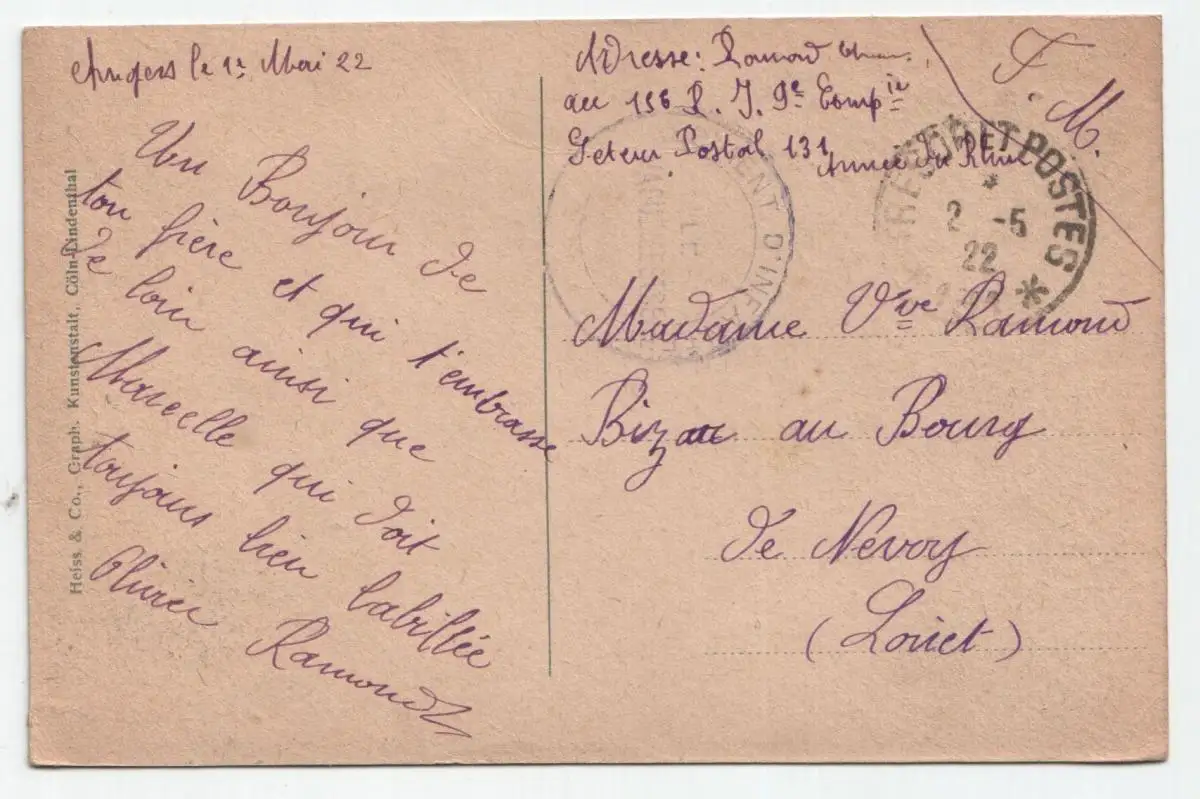 le 1er Mai 22
Un Bonjour de
ton frère et qui t'embrasse
de loin ainsi que
Marcelle qui doit
toujours bien babillée
Olivier Ramond
Adresse: Ramond
au 156 R. I. 9e Compie
Secteur Postal 131 Armée du Rhin
F. M.
TRESOR ET POSTES
2 -5
22
D'INF
LE
Madame Vve Ramond
Bizau au Bourg
de Nevoy
(Loiret)
Heiss & Co., Graph. Kunstanstalt, Cöln-Lindenthal